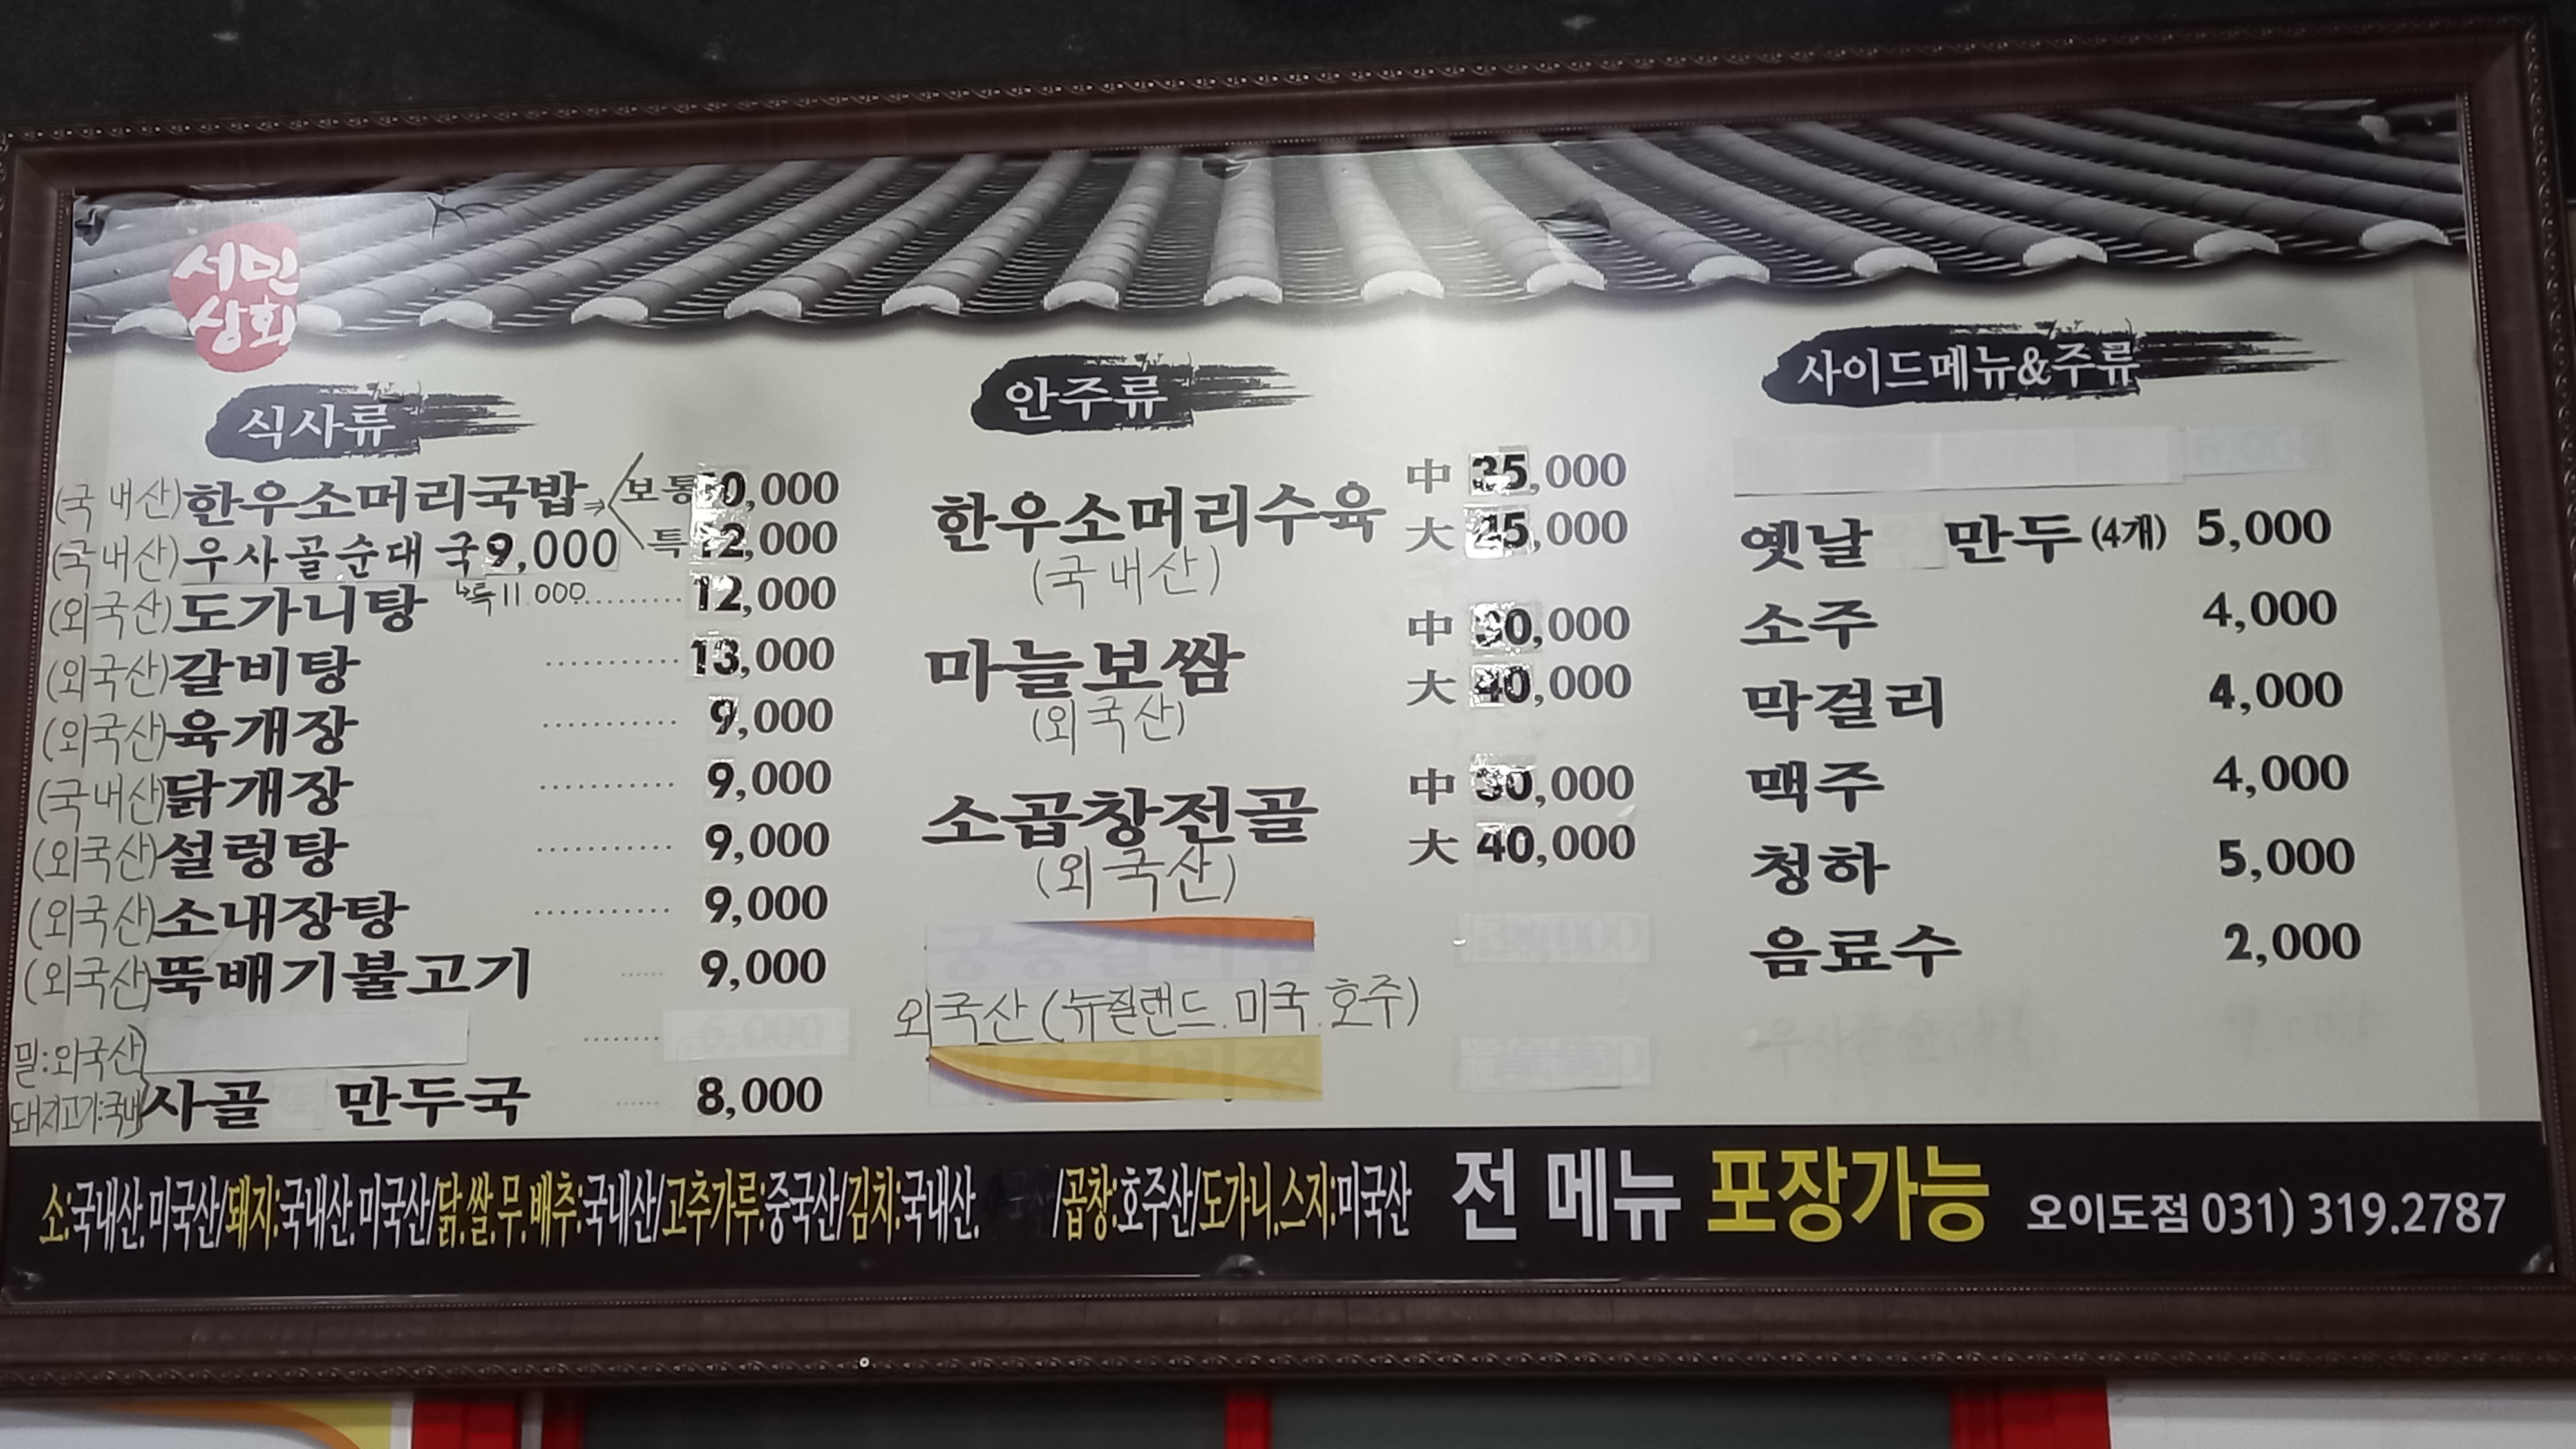 서민
상회
식사류
(국내산)한우소머리국밥⇒ 보통 10,000
특 12,000
(국내산)우사골순대국 9,000
↳특 11.000
(외국산)도가니탕 12,000
(외국산)갈비탕 13,000
(외국산)육개장 9,000
(국내산)닭개장 9,000
(외국산)설렁탕 9,000
(외국산)소내장탕 9,000
(외국산)뚝배기불고기 9,000
밀:외국산
돼지고기:국내 사골 만두국 8,000
안주류
한우소머리수육 中 35,000
大 45,000
(국내산)
마늘보쌈 中 30,000
大 40,000
(외국산)
소곱창전골 中 30,000
大 40,000
(외국산)
외국산(뉴질랜드.미국.호주)
사이드메뉴&주류
옛날 만두(4개) 5,000
소주 4,000
막걸리 4,000
맥주 4,000
청하 5,000
음료수 2,000
소:국내산.미국산/돼지:국내산.미국산/닭.쌀.무.배추:국내산/고추가루:중국산/김치:국내산. /곱창:호주산/도가니.스지:미국산 전 메뉴 포장가능 오이도점 031) 319.2787